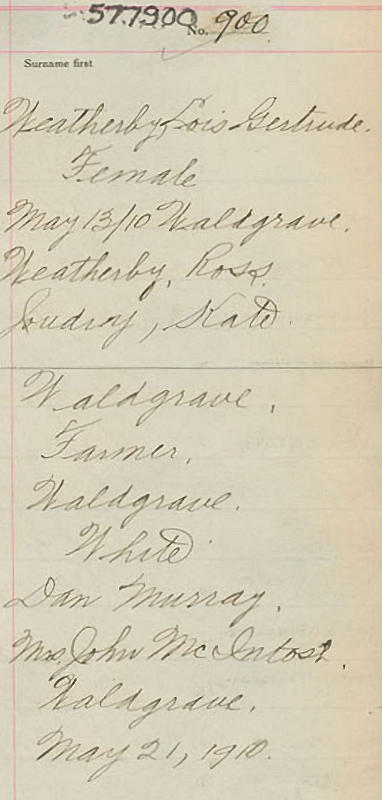 577900 No. 900
Surname first
Weatherby, Lois Gertrude.
Female
May 13/10 Waldgrave.
Weatherby, Ross.
Joudrey, Kate.
Waldgrave,
Farmer,
Waldgrave.
White
Dan Murray,
Mrs. John McIntosh.
Waldgrave.
May 21, 1910.